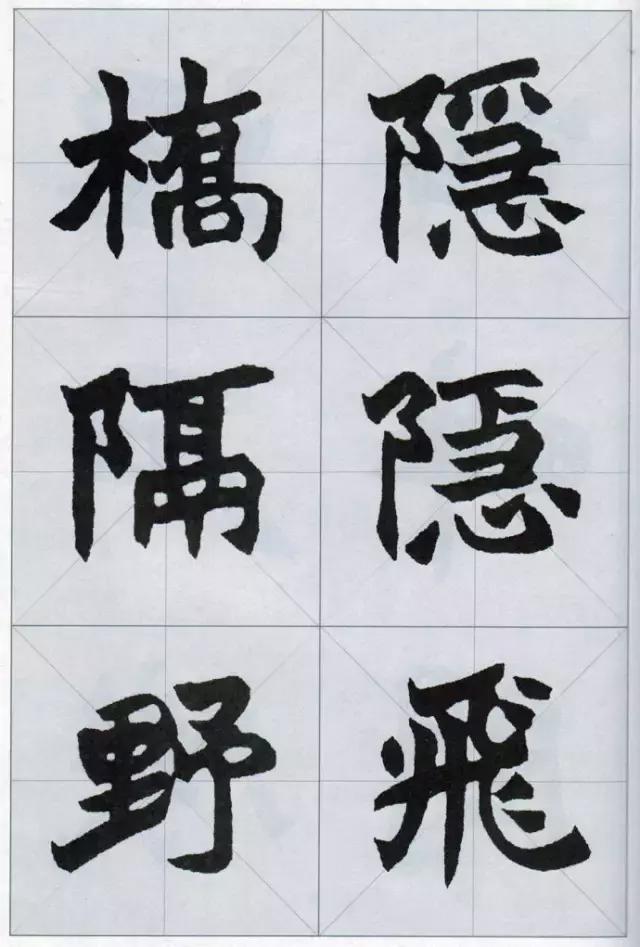 隱隱飛
橋隔野